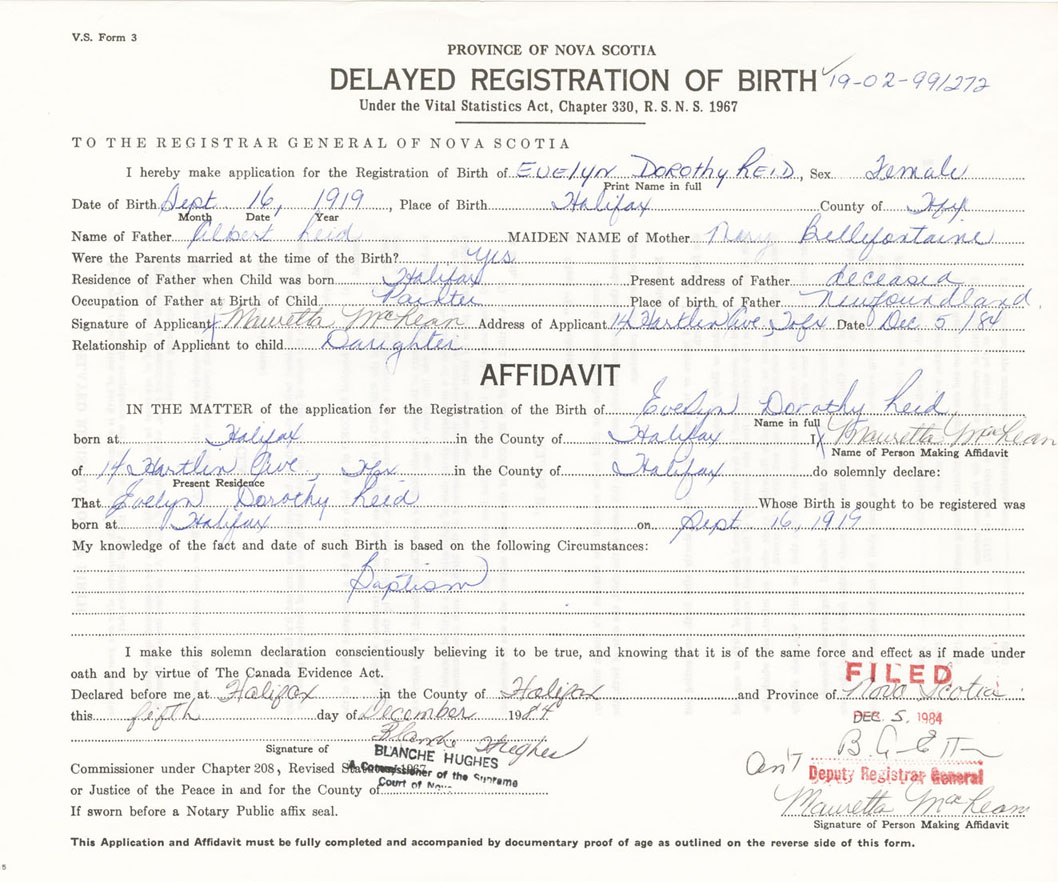 V.S. Form 3
PROVINCE OF NOVA SCOTIA
DELAYED REGISTRATION OF BIRTH 19-02-991272
Under the Vital Statistics Act, Chapter 330, R.S.N.S. 1967
TO THE REGISTRAR GENERAL OF NOVA SCOTIA
I hereby make application for the Registration of Birth of EVElyn DOROthy REID, Sex Female
Print Name in full
Date of Birth Sept 16, 1919, Place of Birth Halifax County of Hfx
Month Date Year
Name of Father Albert Reid MAIDEN NAME of Mother Mary Bellefontaine
Were the Parents married at the time of the Birth? Yes
Residence of Father when Child was born Halifax Present address of Father deceased
Occupation of Father at Birth of Child Painter Place of birth of Father Newfoundland
Signature of Applicant Mauretta MacLean Address of Applicant 14 Hartlin Ave, Hfx Date Dec 5/84
Relationship of Applicant to child Daughter
AFFIDAVIT
IN THE MATTER of the application for the Registration of the Birth of Evelyn Dorothy Reid
Name in full
born at Halifax in the County of Halifax I, Mauretta MacLean
Name of Person Making Affidavit
of 14 Hartlin Ave, Hfx in the County of Halifax do solemnly declare:
Present Residence
That Evelyn Dorothy Reid Whose Birth is sought to be registered was
born at Halifax on Sept 16, 1919
My knowledge of the fact and date of such Birth is based on the following Circumstances:
Baptism
I make this solemn declaration conscientiously believing it to be true, and knowing that it is of the same force and effect as if made under
oath and by virtue of The Canada Evidence Act.
FILED
Declared before me at Halifax in the County of Halifax and Province of Nova Scotia
this fifth day of December 1984
DEC 5. 1984
Blanche Hughes
Signature of BLANCHE HUGHES
Commissioner under Chapter 208, Revised 1967
A Commissioner of the Supreme
Court of
or Justice of the Peace in and for the County of
Deputy Registrar General
If sworn before a Notary Public affix seal.
Mauretta MacLean
Signature of Person Making Affidavit
This Application and Affidavit must be fully completed and accompanied by documentary proof of age as outlined on the reverse side of this form.